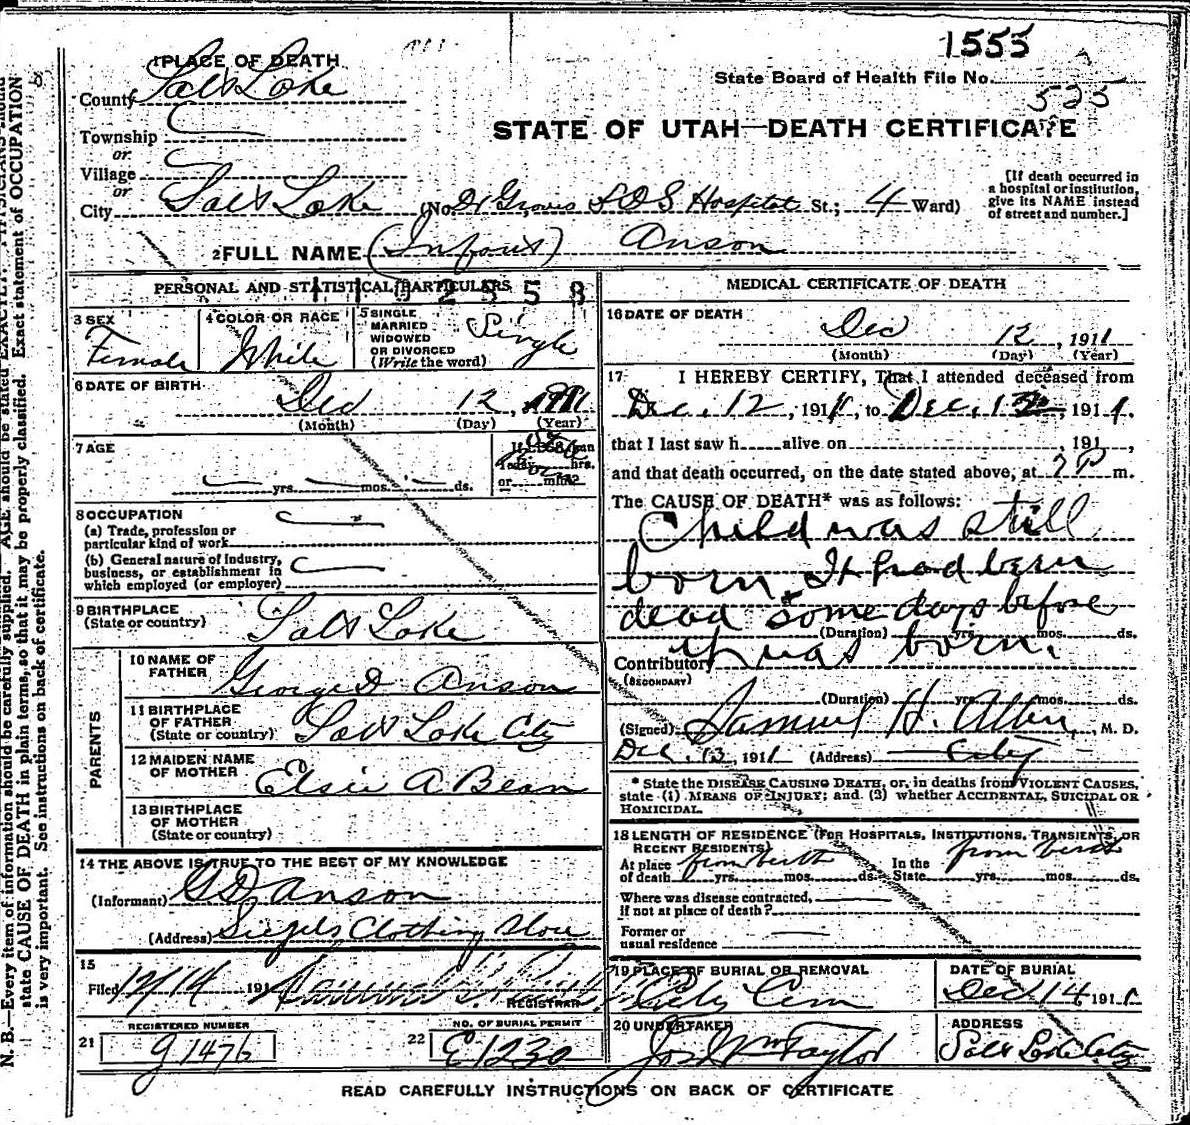 1555
1 PLACE OF DEATH
State Board of Health File No. 525
County Salt Lake
STATE OF UTAH—DEATH CERTIFICATE
Township
or
Village
or
City Salt Lake (No. Dr Groves L D S Hospital St.; 4 Ward)
[If death occurred in
a hospital or institution,
give its NAME instead
of street and number.]
2 FULL NAME (Infant) Anson
PERSONAL AND STATISTICAL PARTICULARS
3 SEX
Female
4 COLOR OR RACE
White
5 SINGLE
MARRIED
WIDOWED
OR DIVORCED
(Write the word)
Single
6 DATE OF BIRTH
Dec 12, 1911
(Month) (Day) (Year)
7 AGE
yrs. mos. ds.
hrs.
or min?
8 OCCUPATION
(a) Trade, profession or
particular kind of work
(b) General nature of industry,
business, or establishment in
which employed (or employer)
9 BIRTHPLACE
(State or country)
Salt Lake
PARENTS
10 NAME OF
FATHER
George D Anson
11 BIRTHPLACE
OF FATHER
(State or country)
Salt Lake City
12 MAIDEN NAME
OF MOTHER
Elsie A. Bean
13 BIRTHPLACE
OF MOTHER
(State or country)
14 THE ABOVE IS TRUE TO THE BEST OF MY KNOWLEDGE
(Informant) G D Anson
(Address) Siegels Clothing Store
15
Filed 12/14 191
REGISTRAR
REGISTERED NUMBER
21 g 1476
NO. OF BURIAL PERMIT
22 E1230
MEDICAL CERTIFICATE OF DEATH
16 DATE OF DEATH
Dec 12, 1911
(Month) (Day) (Year)
17 I HEREBY CERTIFY, That I attended deceased from
Dec. 12, 1911, to Dec. 12, 1911.
that I last saw h alive on , 191 ,
and that death occurred, on the date stated above, at 7 P m.
The CAUSE OF DEATH* was as follows:
Child was still
born. It had been
dead some days before
(Duration) yrs. mos. ds.
it was born.
Contributory
(SECONDARY)
(Duration) yrs. mos. ds.
(Signed) Samuel H. Allen, M. D.
Dec. 13, 1911 (Address) City
* State the DISEASE CAUSING DEATH, or, in deaths from VIOLENT CAUSES,
state (1) MEANS OF INJURY; and (2) whether ACCIDENTAL, SUICIDAL OR
HOMICIDAL.
18 LENGTH OF RESIDENCE (FOR HOSPITALS, INSTITUTIONS, TRANSIENTS, OR
RECENT RESIDENTS)
At place from birth In the from birth
of death yrs. mos. ds. State yrs. mos. ds.
Where was disease contracted,
if not at place of death?
Former or
usual residence
19 PLACE OF BURIAL OR REMOVAL
City Cem
DATE OF BURIAL
Dec 14 1911
20 UNDERTAKER
Jos Wm Taylor
ADDRESS
Salt Lake City
READ CAREFULLY INSTRUCTIONS ON BACK OF CERTIFICATE
N. B.—Every item of information should be carefully supplied. AGE should be stated EXACTLY. PHYSICIANS should
state CAUSE OF DEATH in plain terms, so that it may be properly classified. Exact statement of OCCUPATION
is very important. See instructions on back of certificate.